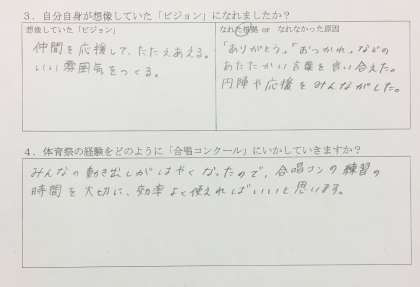 3．自分自身が想像していた「ビジョン」になれましたか？
想像していた「ビジョン」
仲間を応援して、たたえあえる。
いい雰囲気をつくる。
なれた根拠 or なれなかった原因
「ありがとう。」「おつかれ。」などの
あたたかい言葉を言い合えた。
円陣や応援をみんながした。
4．体育祭の経験をどのように「合唱コンクール」にいかしていきますか？
みんなの動き出しがはやくなったので、合唱コンの練習の
時間を大切に、効率よく使えればいいと思います。